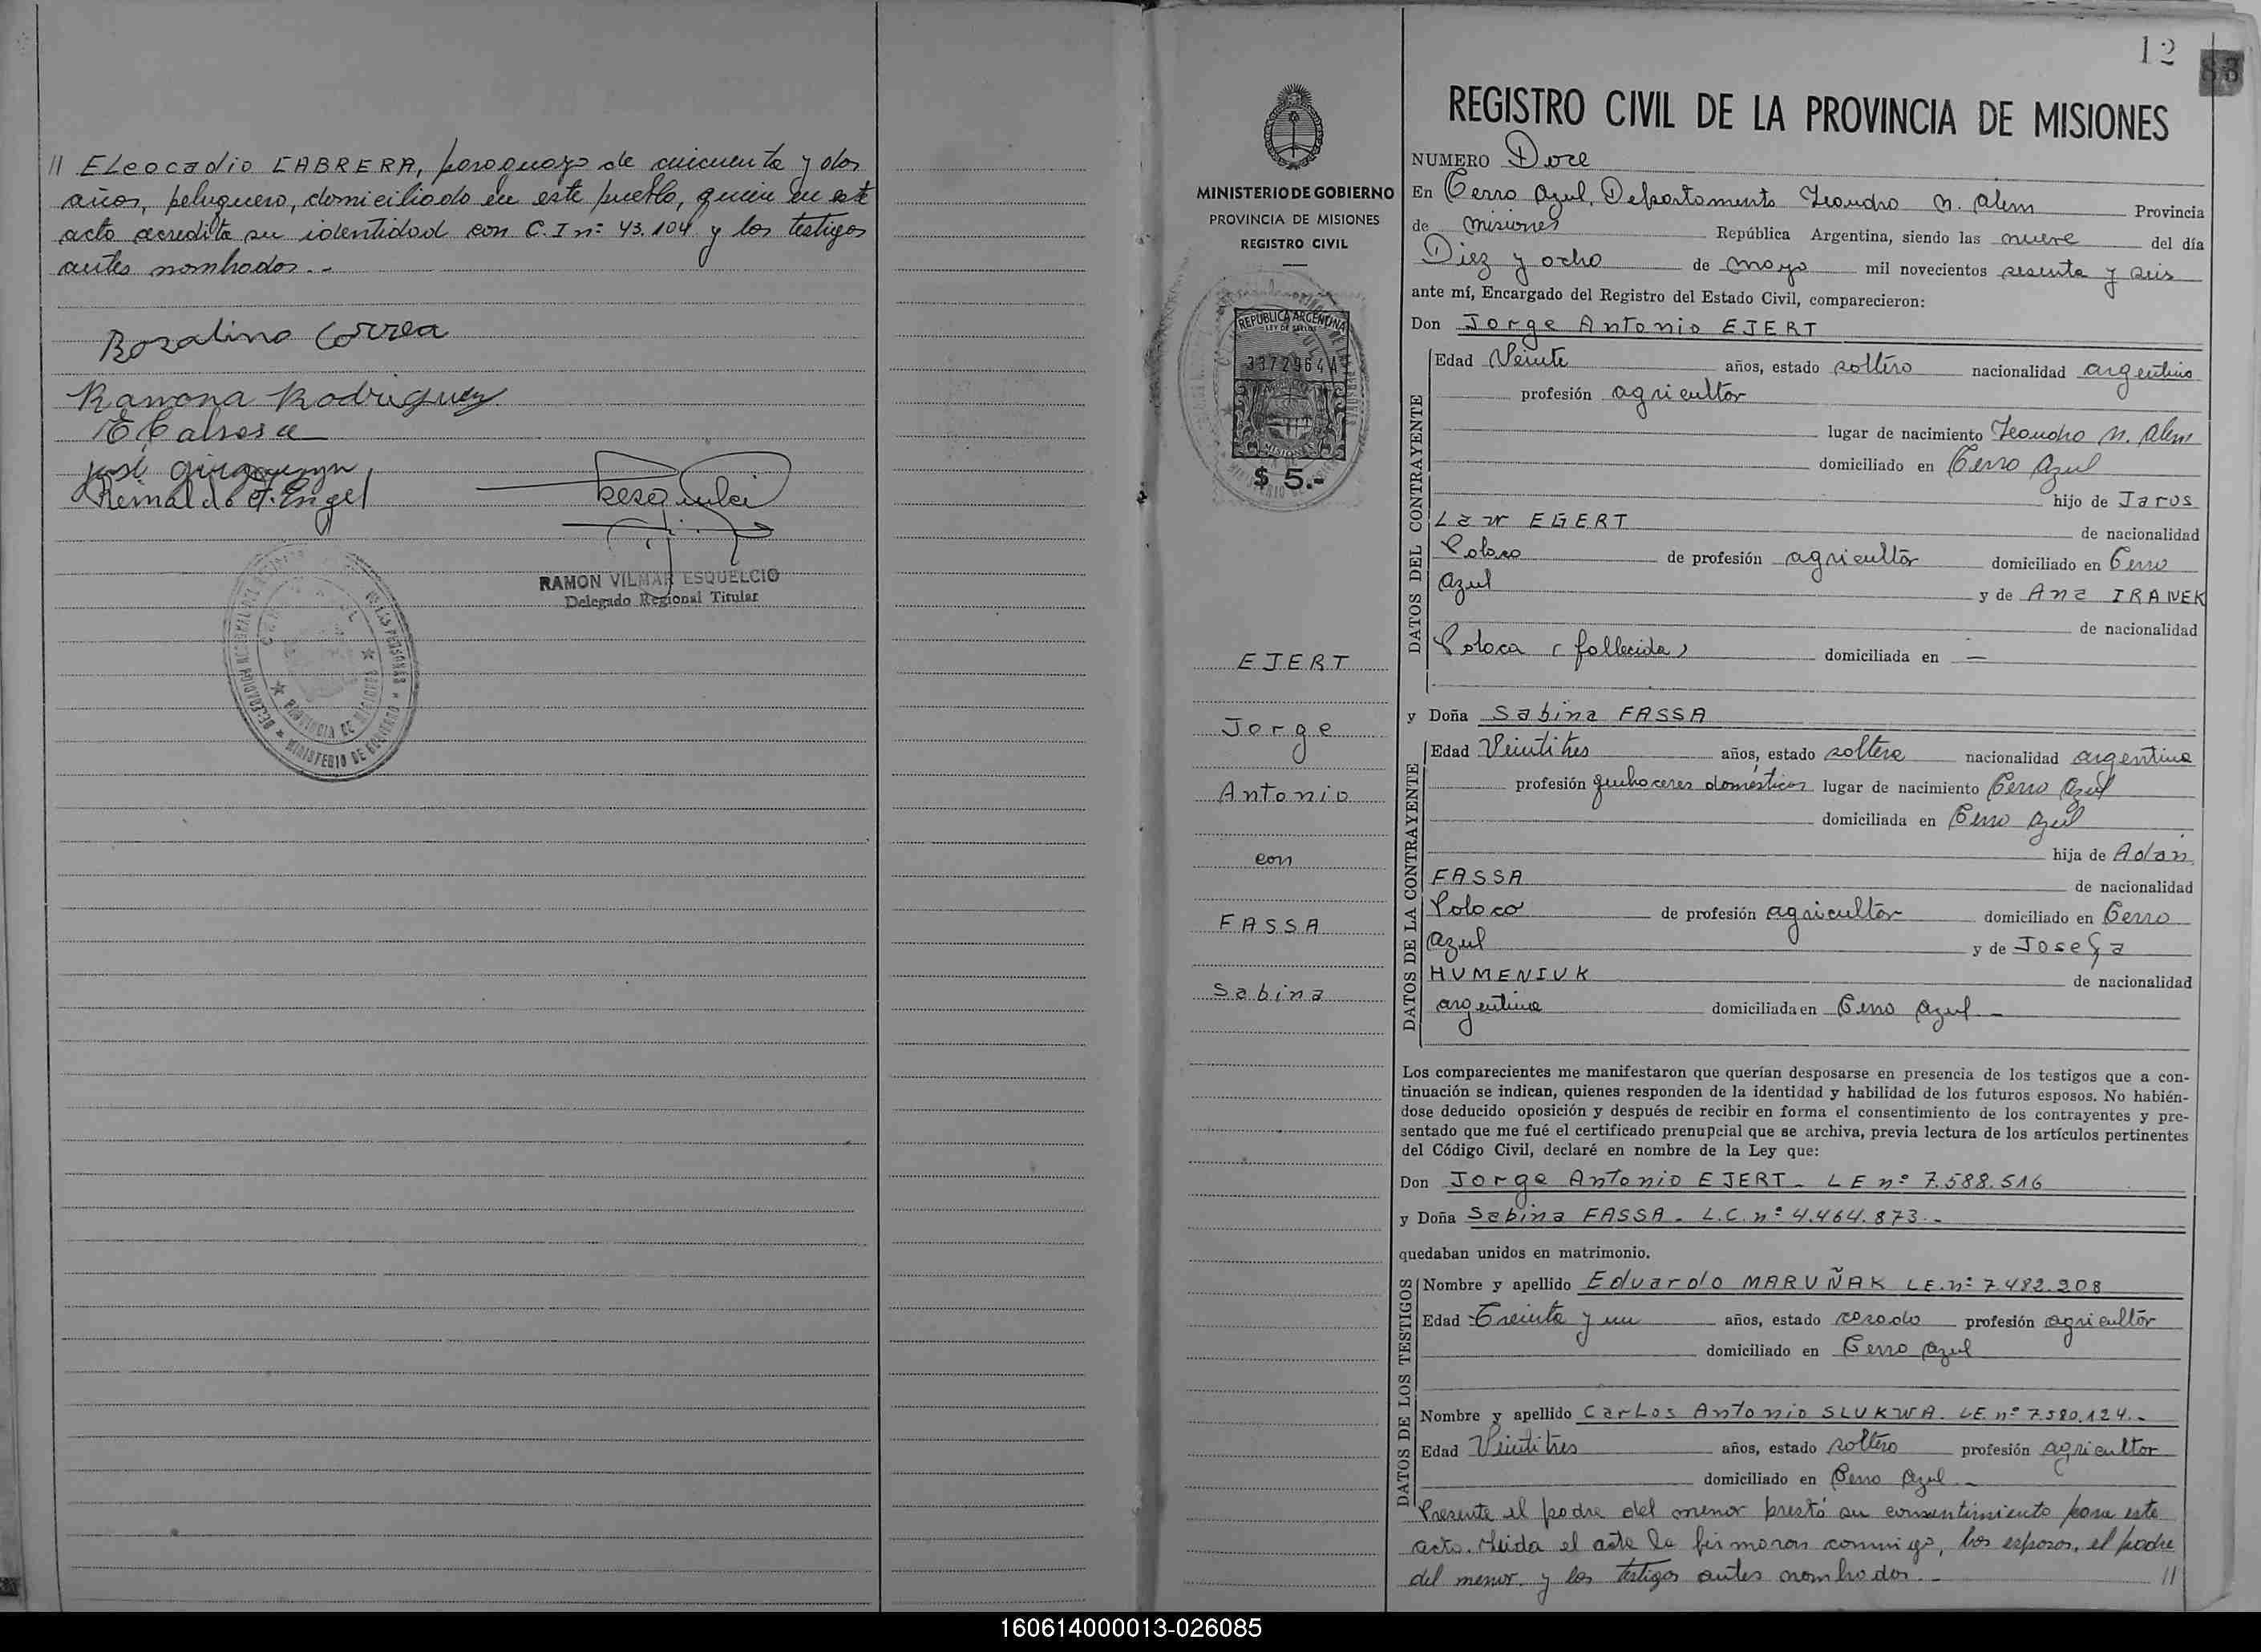 // ELeocadio CABRERA, paraguayo de cincuenta y dos
años, peluquero, domiciliado en este pueblo, quien en este
acto acredita su identidad con C. I nº: 43.104 y los testigos
antes nombrados.-
Rozalino Correa
Ramona Rodriguez
Reinaldo F. Engel
RAMON VILMAR ESQUELCIO
Delegado Regional Titular
PROVINCIA DE MISIONES
MINISTERIO DE GOBIERNO
MINISTERIO DE GOBIERNO
PROVINCIA DE MISIONES
REGISTRO CIVIL
REPUBLICA ARGENTINA
LEY DE SELLOS
3372964 A
MISIONES
$ 5.-
EJERT
Jorge
Antonio
con
FASSA
Sabina
12
REGISTRO CIVIL DE LA PROVINCIA DE MISIONES
NUMERO Doce
En Cerro Azul, Departamento Leandro N. Alem Provincia
de Misiones República Argentina, siendo las nueve del día
Diez y ocho de mayo mil novecientos sesenta y seis
ante mí, Encargado del Registro del Estado Civil, comparecieron:
Don Jorge Antonio EJERT
DATOS DEL CONTRAYENTE
Edad Veinte años, estado soltero nacionalidad argentino
profesión agricultor
lugar de nacimiento Leandro N. Alem
domiciliado en Cerro Azul
hijo de Jaros
Law EGERT de nacionalidad
Polaco de profesión agricultor domiciliado en Cerro
Azul y de Ana IRANEK
de nacionalidad
Polaca (fallecida) domiciliada en —
y Doña Sabina FASSA
DATOS DE LA CONTRAYENTE
Edad Veintitres años, estado soltera nacionalidad argentina
profesión quehaceres domésticos lugar de nacimiento Cerro Azul
domiciliada en Cerro Azul
hija de Adan
FASSA de nacionalidad
Polaco de profesión agricultor domiciliado en Cerro
Azul y de Josefa
HUMENIUK de nacionalidad
argentina domiciliada en Cerro Azul -
Los comparecientes me manifestaron que querían desposarse en presencia de los testigos que a con-
tinuación se indican, quienes responden de la identidad y habilidad de los futuros esposos. No habién-
dose deducido oposición y después de recibir en forma el consentimiento de los contrayentes y pre-
sentado que me fué el certificado prenupcial que se archiva, previa lectura de los artículos pertinentes
del Código Civil, declaré en nombre de la Ley que:
Don Jorge Antonio EJERT - L E nº 7.588.516
y Doña Sabina FASSA - L.C. nº 4.464.873.-
quedaban unidos en matrimonio.
DATOS DE LOS TESTIGOS
Nombre y apellido Eduardo MARUÑAK LE. nº 7.482.208
Edad Treinta y un años, estado casado profesión agricultor
domiciliado en Cerro Azul
Nombre y apellido Carlos Antonio SLUKWA. LE. nº 7.580.124.-
Edad Veintitres años, estado soltero profesión agricultor
domiciliado en Cerro Azul -
Presente el padre del menor prestó su consentimiento para este
acto. Leida el acta la firmaron conmigo, los esposos, el padre
del menor y los testigos antes nombrados.- //
160614000013-026085